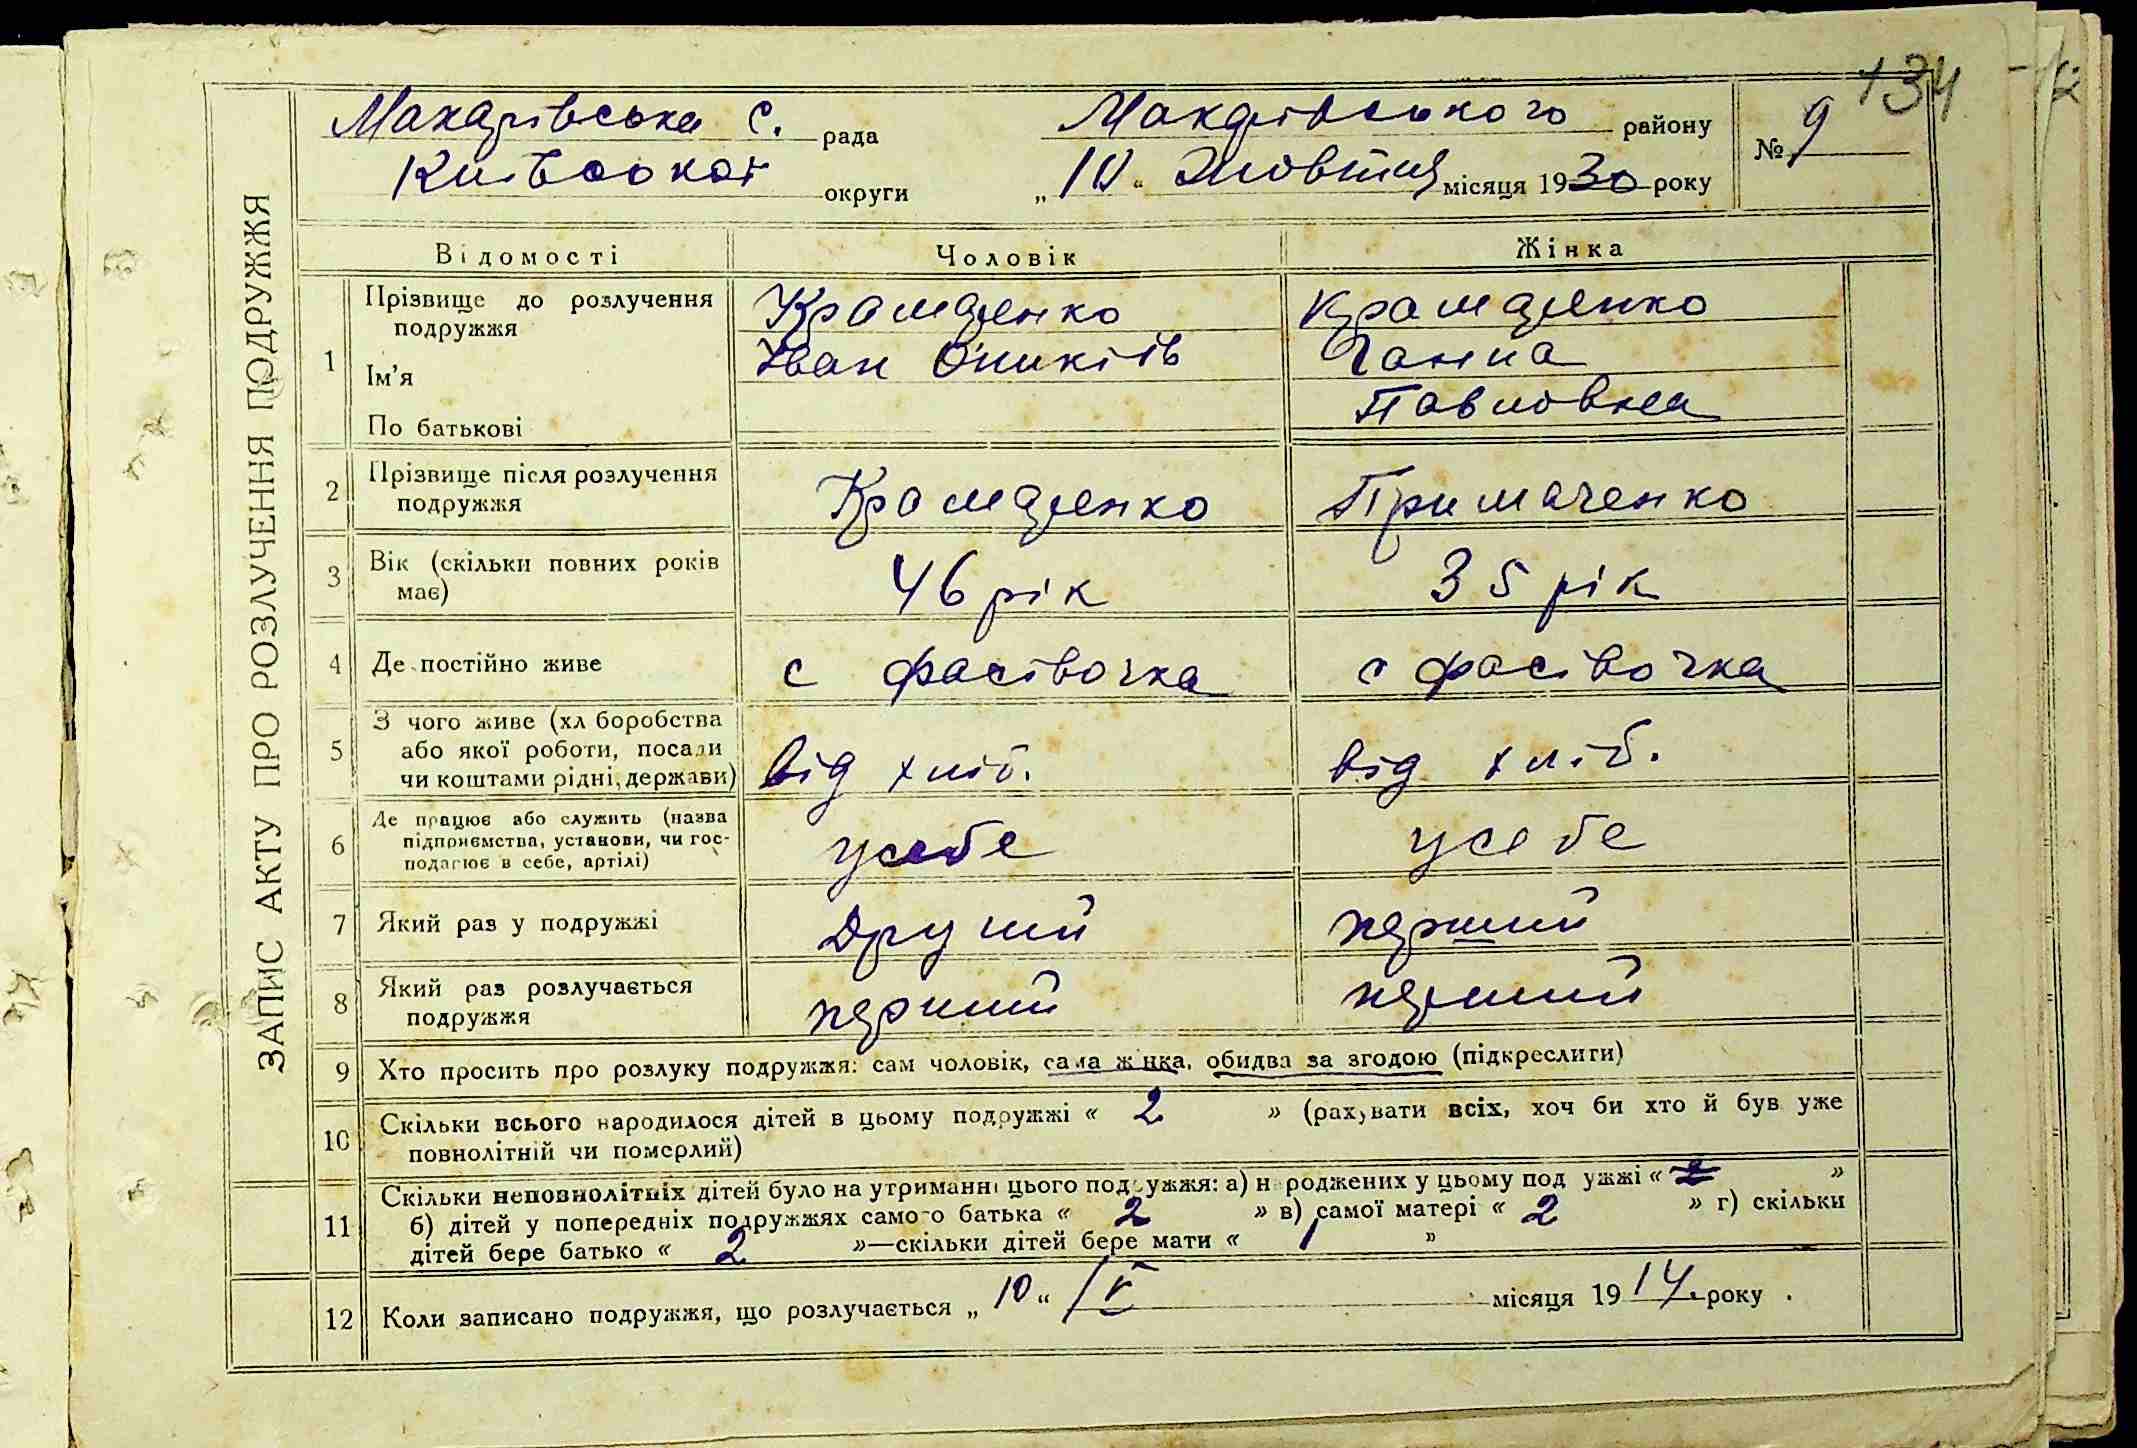 134
Макарівська с. рада Макарівського району № 9
Київської округи „10“ Жовтня місяця 1930 року
ЗАПИС АКТУ ПРО РОЗЛУЧЕННЯ ПОДРУЖЖЯ
Відомості Чоловік Жінка
1 Прізвище до розлучення подружжя Крамаренко Крамаренко
Ім'я Іван Оникіїв Ганна
По батькові Павловна
2 Прізвище після розлучення подружжя Крамаренко Примаченко
3 Вік (скільки повних років має) 46 рік 35 рік
4 Де постійно живе с Фасівочка с Фасівочка
5 З чого живе (хліборобства або якої роботи, посади чи коштами рідні, держави) від хліб. від хліб.
6 Де працює або служить (назва підприємства, установи, чи господарює в себе, артілі) усебе усебе
7 Який раз у подружжі Другий перший
8 Який раз розлучається подружжя перший перший
9 Хто просить про розлуку подружжя: сам чоловік, сама жінка, обидва за згодою (підкреслити)
10 Скільки всього народилося дітей в цьому подружжі « 2 » (рахувати всіх, хоч би хто й був уже
повнолітній чи померлий)
11 Скільки неповнолітніх дітей було на утриманні цього подружжя: а) народжених у цьому подружжі « 2 »
б) дітей у попередніх подружжях самого батька « 2 » в) самої матері « 2 » г) скільки
дітей бере батько « 2 »—скільки дітей бере мати « 1 »
12 Коли записано подружжя, що розлучається „10“ IV місяця 1914 року.